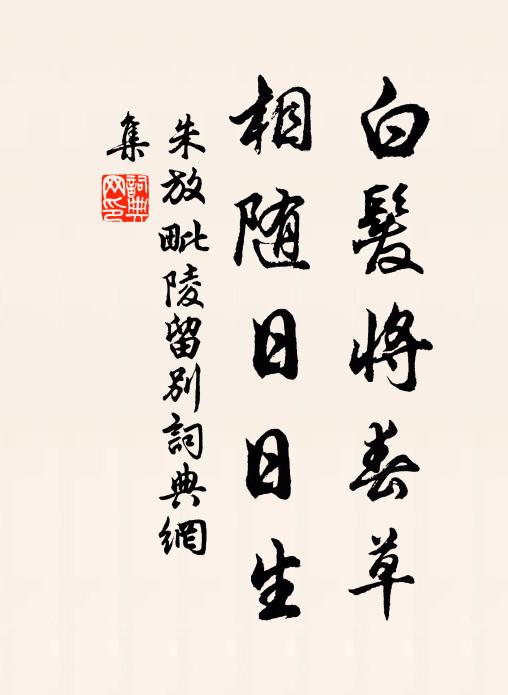 白髮將春草
相随日日生
朱放毗陵留別詞典網
集
詞典
网印